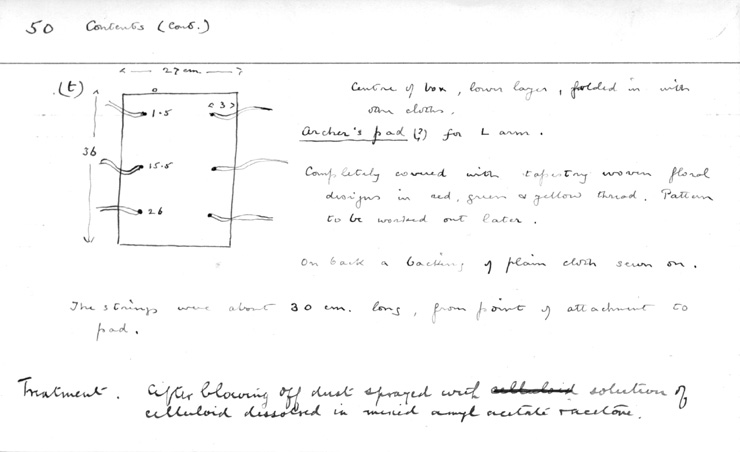 50 Contents (Cont.)
< --- 27 cm --- >
(t)
0
Centre of box, lower layer, folded in with
other cloths.
1.5
<3>
Archer's pad (?) for L arm.
36
15.5
Completely covered with tapestry woven floral
designs in red, green & yellow thread. Pattern
to be worked out later.
26
On back a backing of plain cloth sewn on.
The strings were about 30 cm. long, from point of attachment to
pad.
Treatment. After blowing off dust sprayed with celluloid solution of
celluloid dissolved in mixed amyl acetate & acetone.